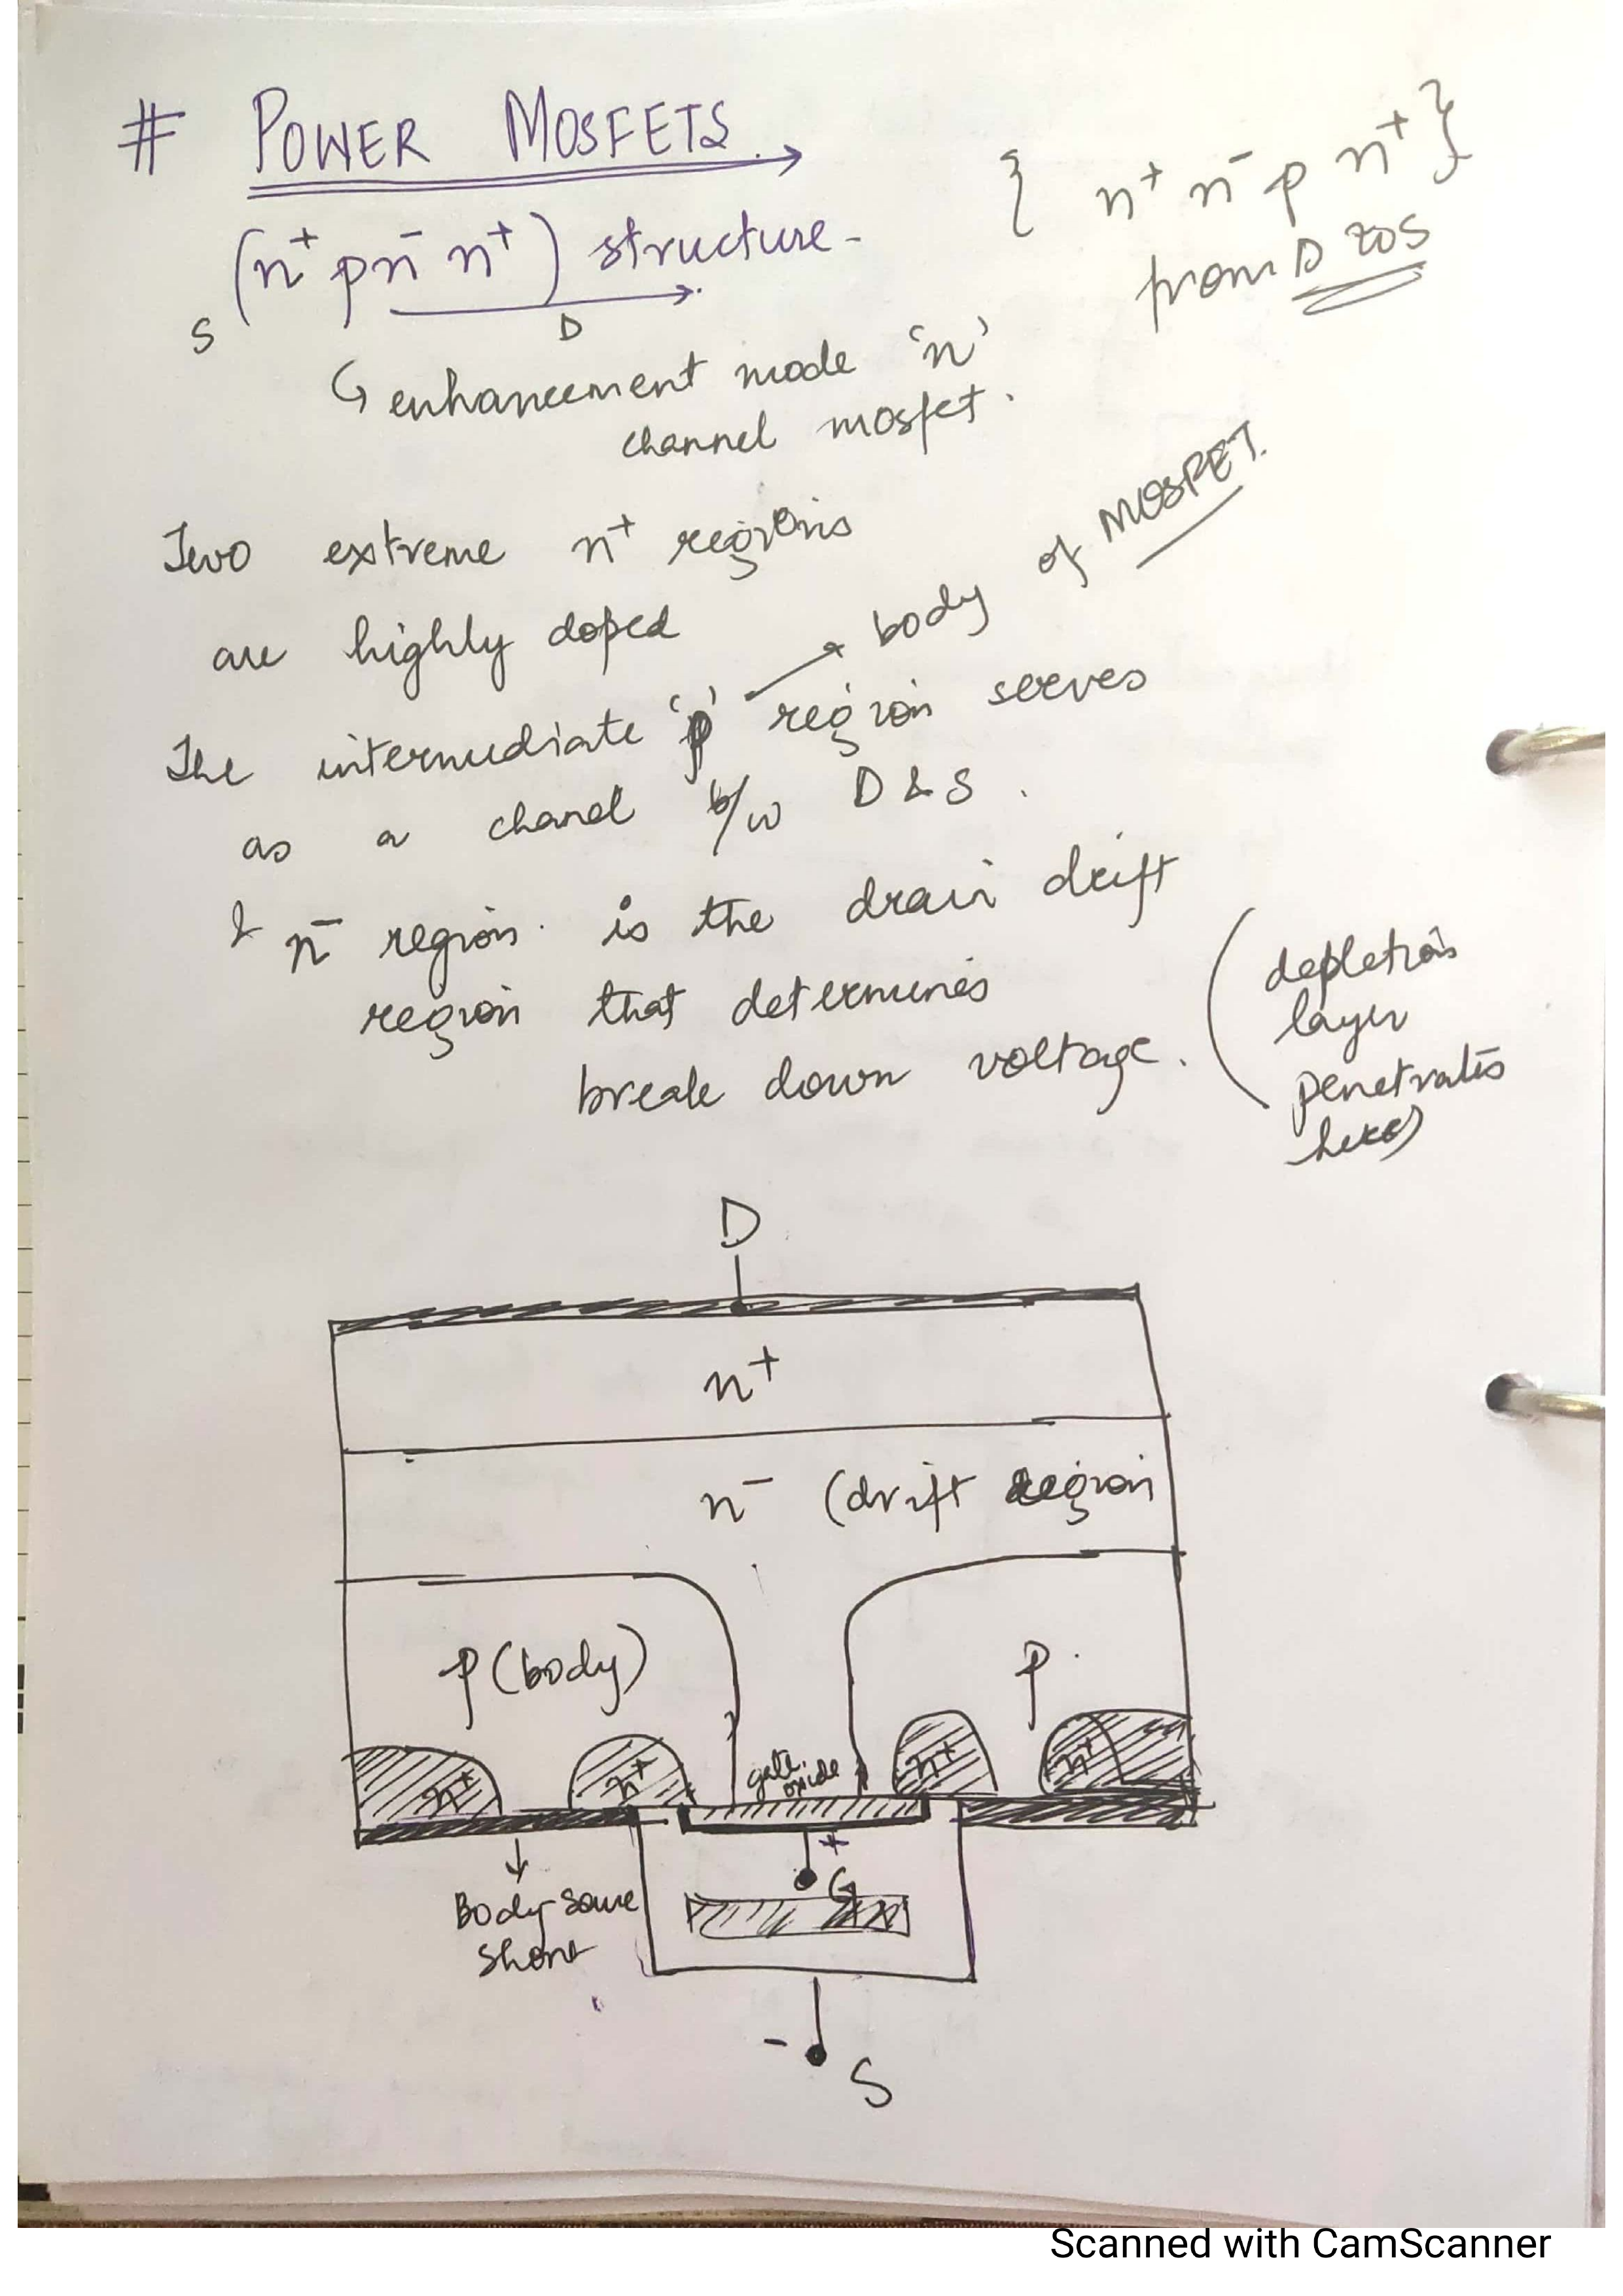 # POWER MOSFETS.
(n⁺ p n⁻ n⁺) structure-
S D
{ n⁺ n⁻ p n⁺ }
from D to S
enhancement mode 'n'
channel mosfet.
Two extreme n⁺ regions
are highly doped
The intermediate 'p' region serves
body of MOSFET.
as a chanel b/w D & S.
& n⁻ region. is the drain drift
region that determines
break down voltage.
(depletion
layer
penetrates
here)
D
n⁺
n⁻ (drift region
p (body)
p
n⁺ n⁺ n⁺ n⁺
gate
oxide
+
G
Body
short
-
S
Scanned with CamScanner